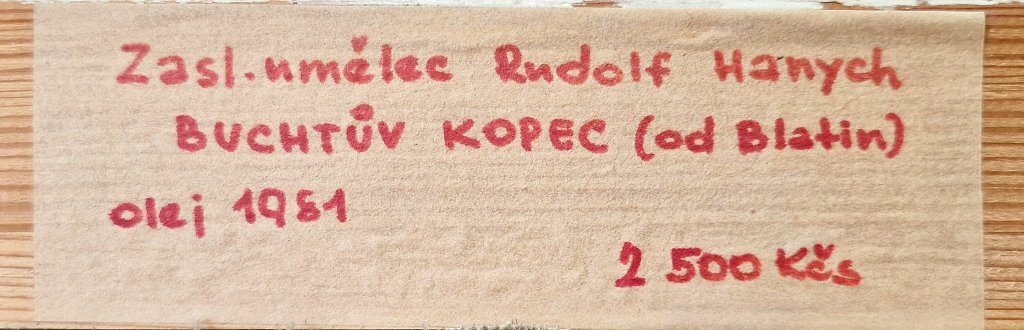 Zasl. umělec Rudolf Hanych
BUCHTŮV KOPEC (od Blatin)
olej 1981
2 500 Kčs